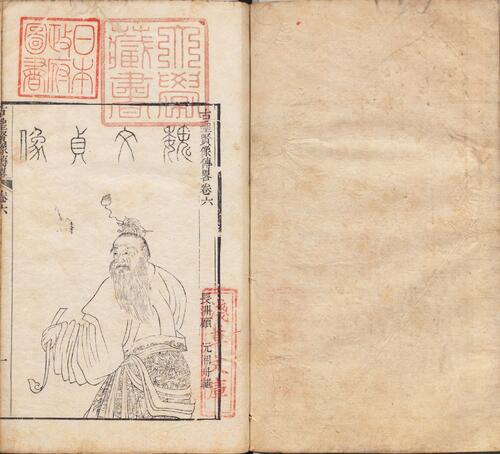 日本
政府
圖書
大學
藏書
古聖賢像傳畧卷六
魏文貞像
長洲顧 沅湘舟輯
淺草文庫
古聖賢像傳畧 卷六
一